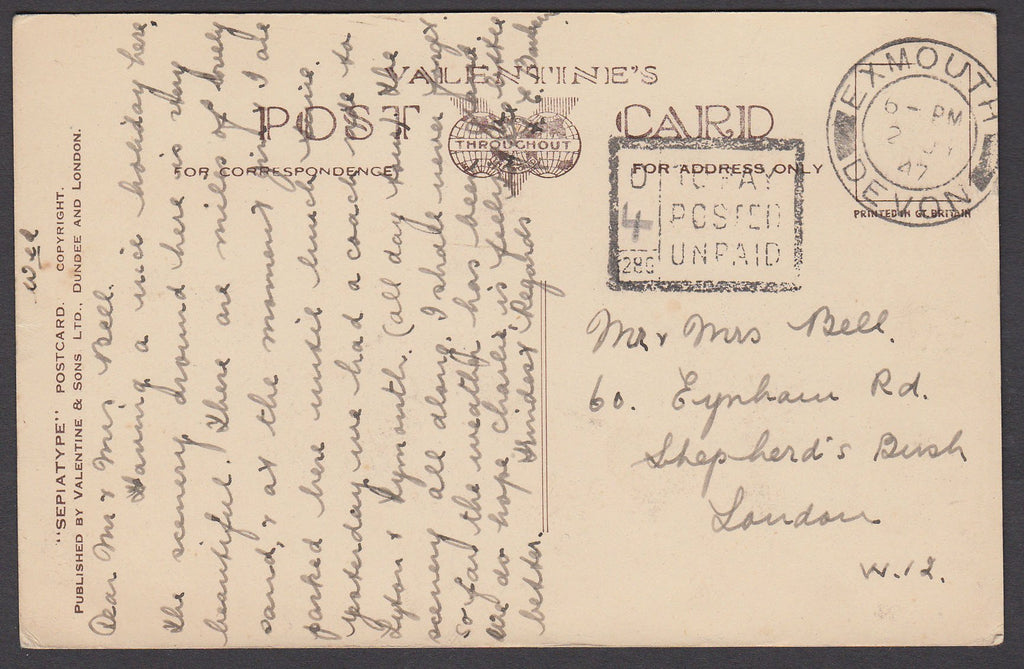 VALENTINE'S
POST CARD
THROUGHOUT
FOR CORRESPONDENCE
FOR ADDRESS ONLY
PRINTED IN GT. BRITAIN
EXMOUTH
6 - PM
2
47
DEVON
TO PAY
4
POSTED
UNPAID
286
"SEPIATYPE" POSTCARD. COPYRIGHT.
PUBLISHED BY VALENTINE & SONS LTD., DUNDEE AND LONDON.
Wed
Dear Mr & Mrs Bell.
Having a nice holiday here,
the scenery around here is very
beautiful. There are miles of lovely
sand, & at the moment of writing I are
parked here until lunch time.
yesterday we had a coach ride to
Lyton & Lymouth. (all day tour) the
scenery all along. I shall never forget.
So far the weather has been good
we do hope Charlie is feeling a little
better. Kindest Regards
Mr & Mrs Bell.
60. Eynham Rd.
Shepherd's Bush
London
W.12.